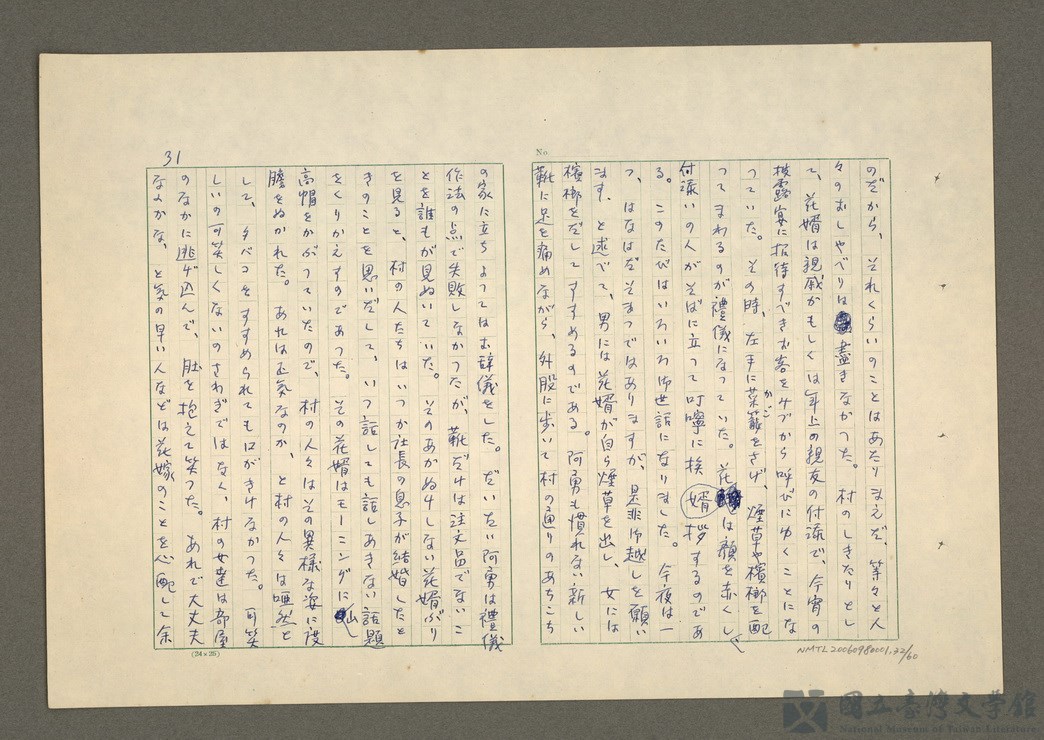 No.
のだから、それくらいのことはあたりまえだ、等々と人
々のおしゃべりは盡きなかった。村のしきたりとし
て、花婿は親戚かもしくは年上の親友の付添で、今宵の
披露宴に招待すべきお客を今づから呼びにゆくことにな
っていた。その時、左手に菜籠をさげ、煙草や檳榔を配
かご
ってまわるのが禮儀になっていた。花婿は顔を赤くし、
付添いの人がそばに立って叮嚀に挨拶するのであ
る。このたびはいろいろ御世話になりました。今夜は一
つ、はなはだそまつではありますが、是非御越しを願い
ます、と述べて、男には花婿が自ら煙草を出し、女には
檳榔をだしてすすめるのである。阿勇も慣れない新しい
靴に足を痛めながら、外股に歩いて村の通りのあちこち
の家に立ちよってはお辞儀をした。だいたい阿勇は禮儀
作法の点で失敗しなかったが、靴だけは注文品でないこ
とを誰もが見ぬいていた。そのあかぬけしない花婿ぶり
を見ると、村の人たちはいつか社長の息子が結婚したと
きのことを思いだして、いつ話しても話しあきない話題
をくりかえすのであった。その花婿はモーニングに
高帽をかぶっていたので、村の人々はその異様な姿に度
膽をぬかれた。あれはお気なのか、と村の人々は唖然と
して、タバコをすすめられても口がきけなかった。可笑
しいの可笑しくないのさわぎではなく、村の女達は部屋
のなかに逃げ込んで、肚を抱えて笑った。あれで大丈夫
なよかな、と気の早い人などは花嫁のことを心配して余
31
(24×25)
NMTL20060980001.32/60
國立臺灣文學館
National Museum of Taiwan Literature